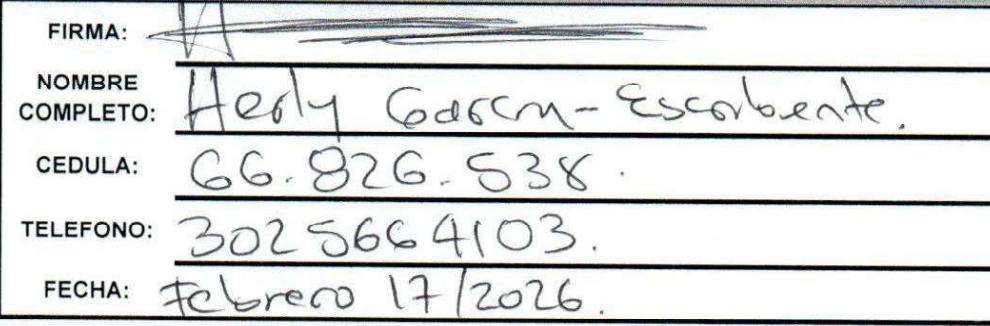 FIRMA:
NOMBRE
COMPLETO: Herly Garcia - Escarbente.
CEDULA: 66.826.538.
TELEFONO: 3025664103.
FECHA: Febrero 17/2026.